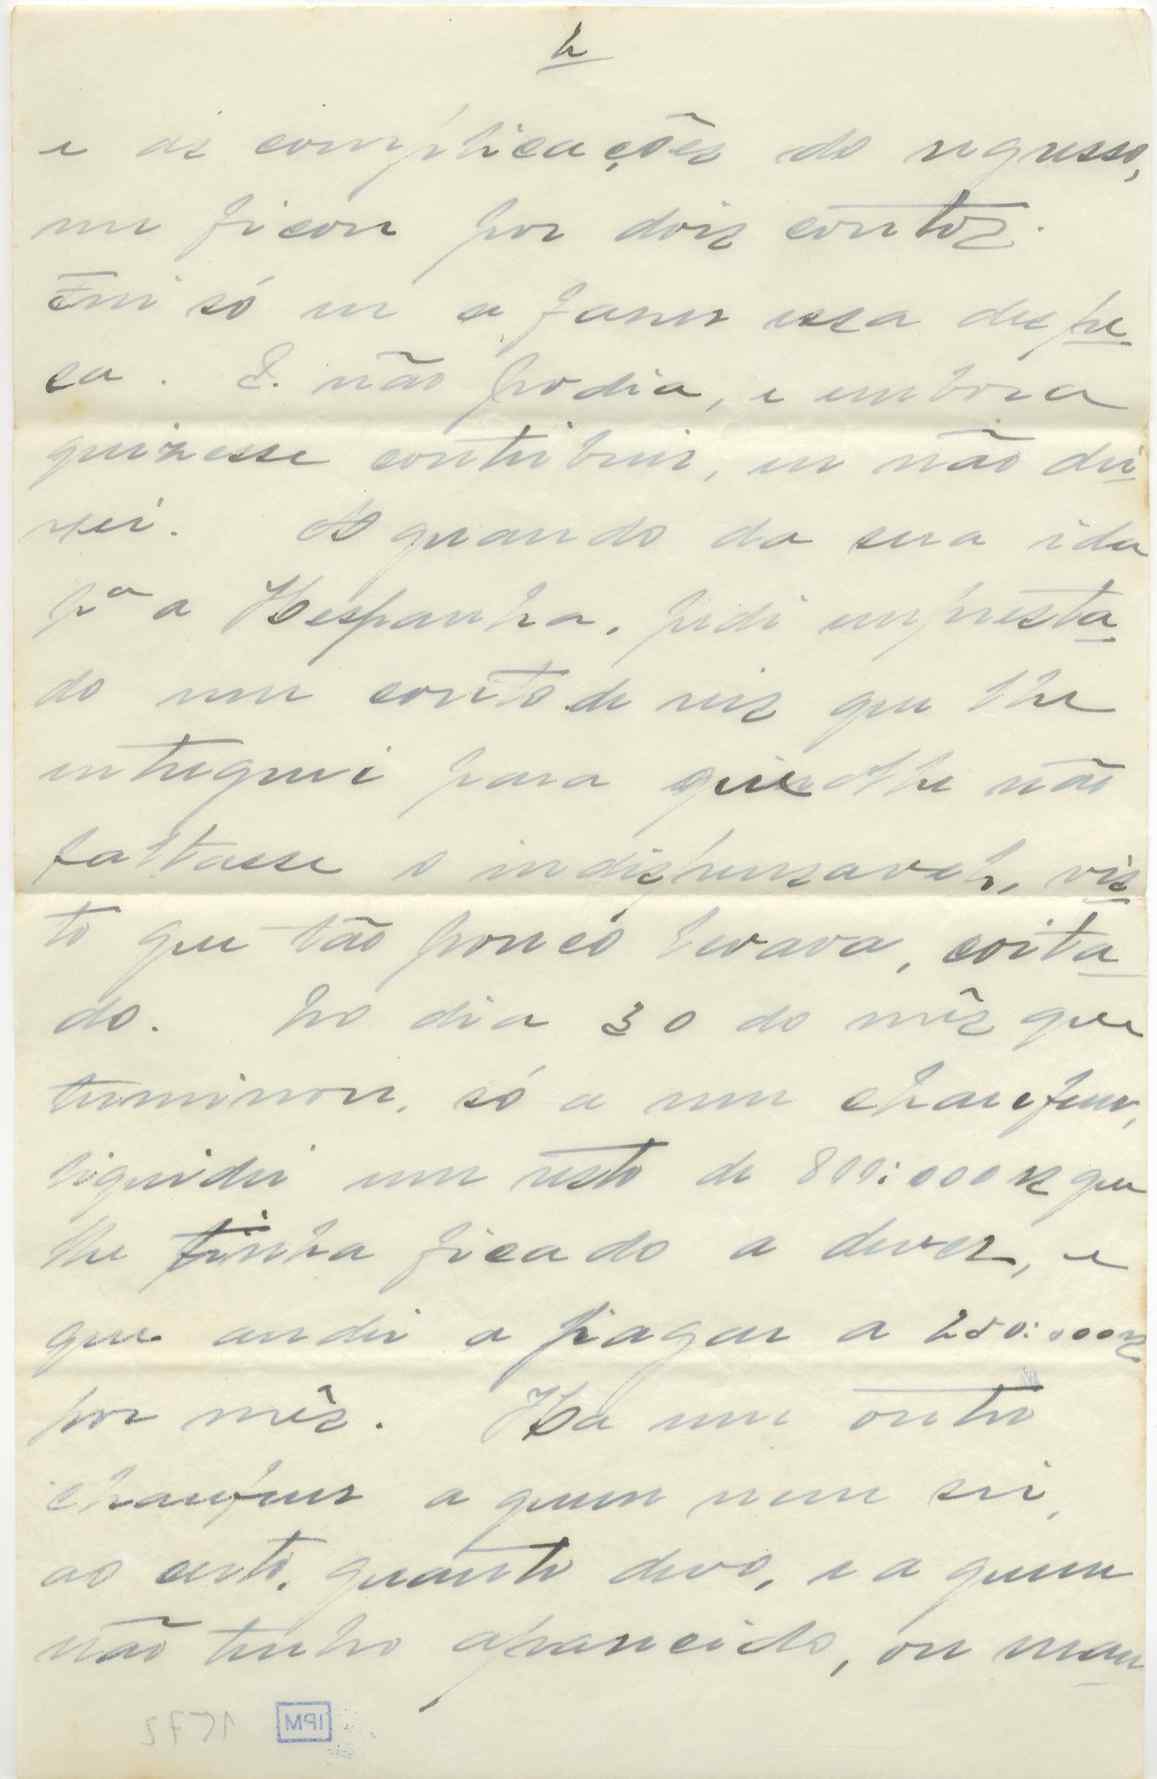 2
e as complicações do regresso,
me ficou por dois contos.
Fui só eu a fazer essa despe
sa. E. não podia, e embora
quizesse contribuir, eu não dei
xei. Aquando da sua ida
pª a Hespanha, pedi empresta
do um conto de reis que lhe
entreguei para que lhe não
faltasse o indispensavel, vis
to que tão pouco levava, coita
do. No dia 30 do mês que
terminou, só a um chaufeur,
liquidei um resto de 800:000 rs que
lhe tinha ficado a dever, e
que andei a pagar a 250:000 rs
por mês. Ha um outro
chaufeur a quem nem sei,
ao certo, quanto devo, e a quem
não tenho aparecido, ou man
IPM
1572